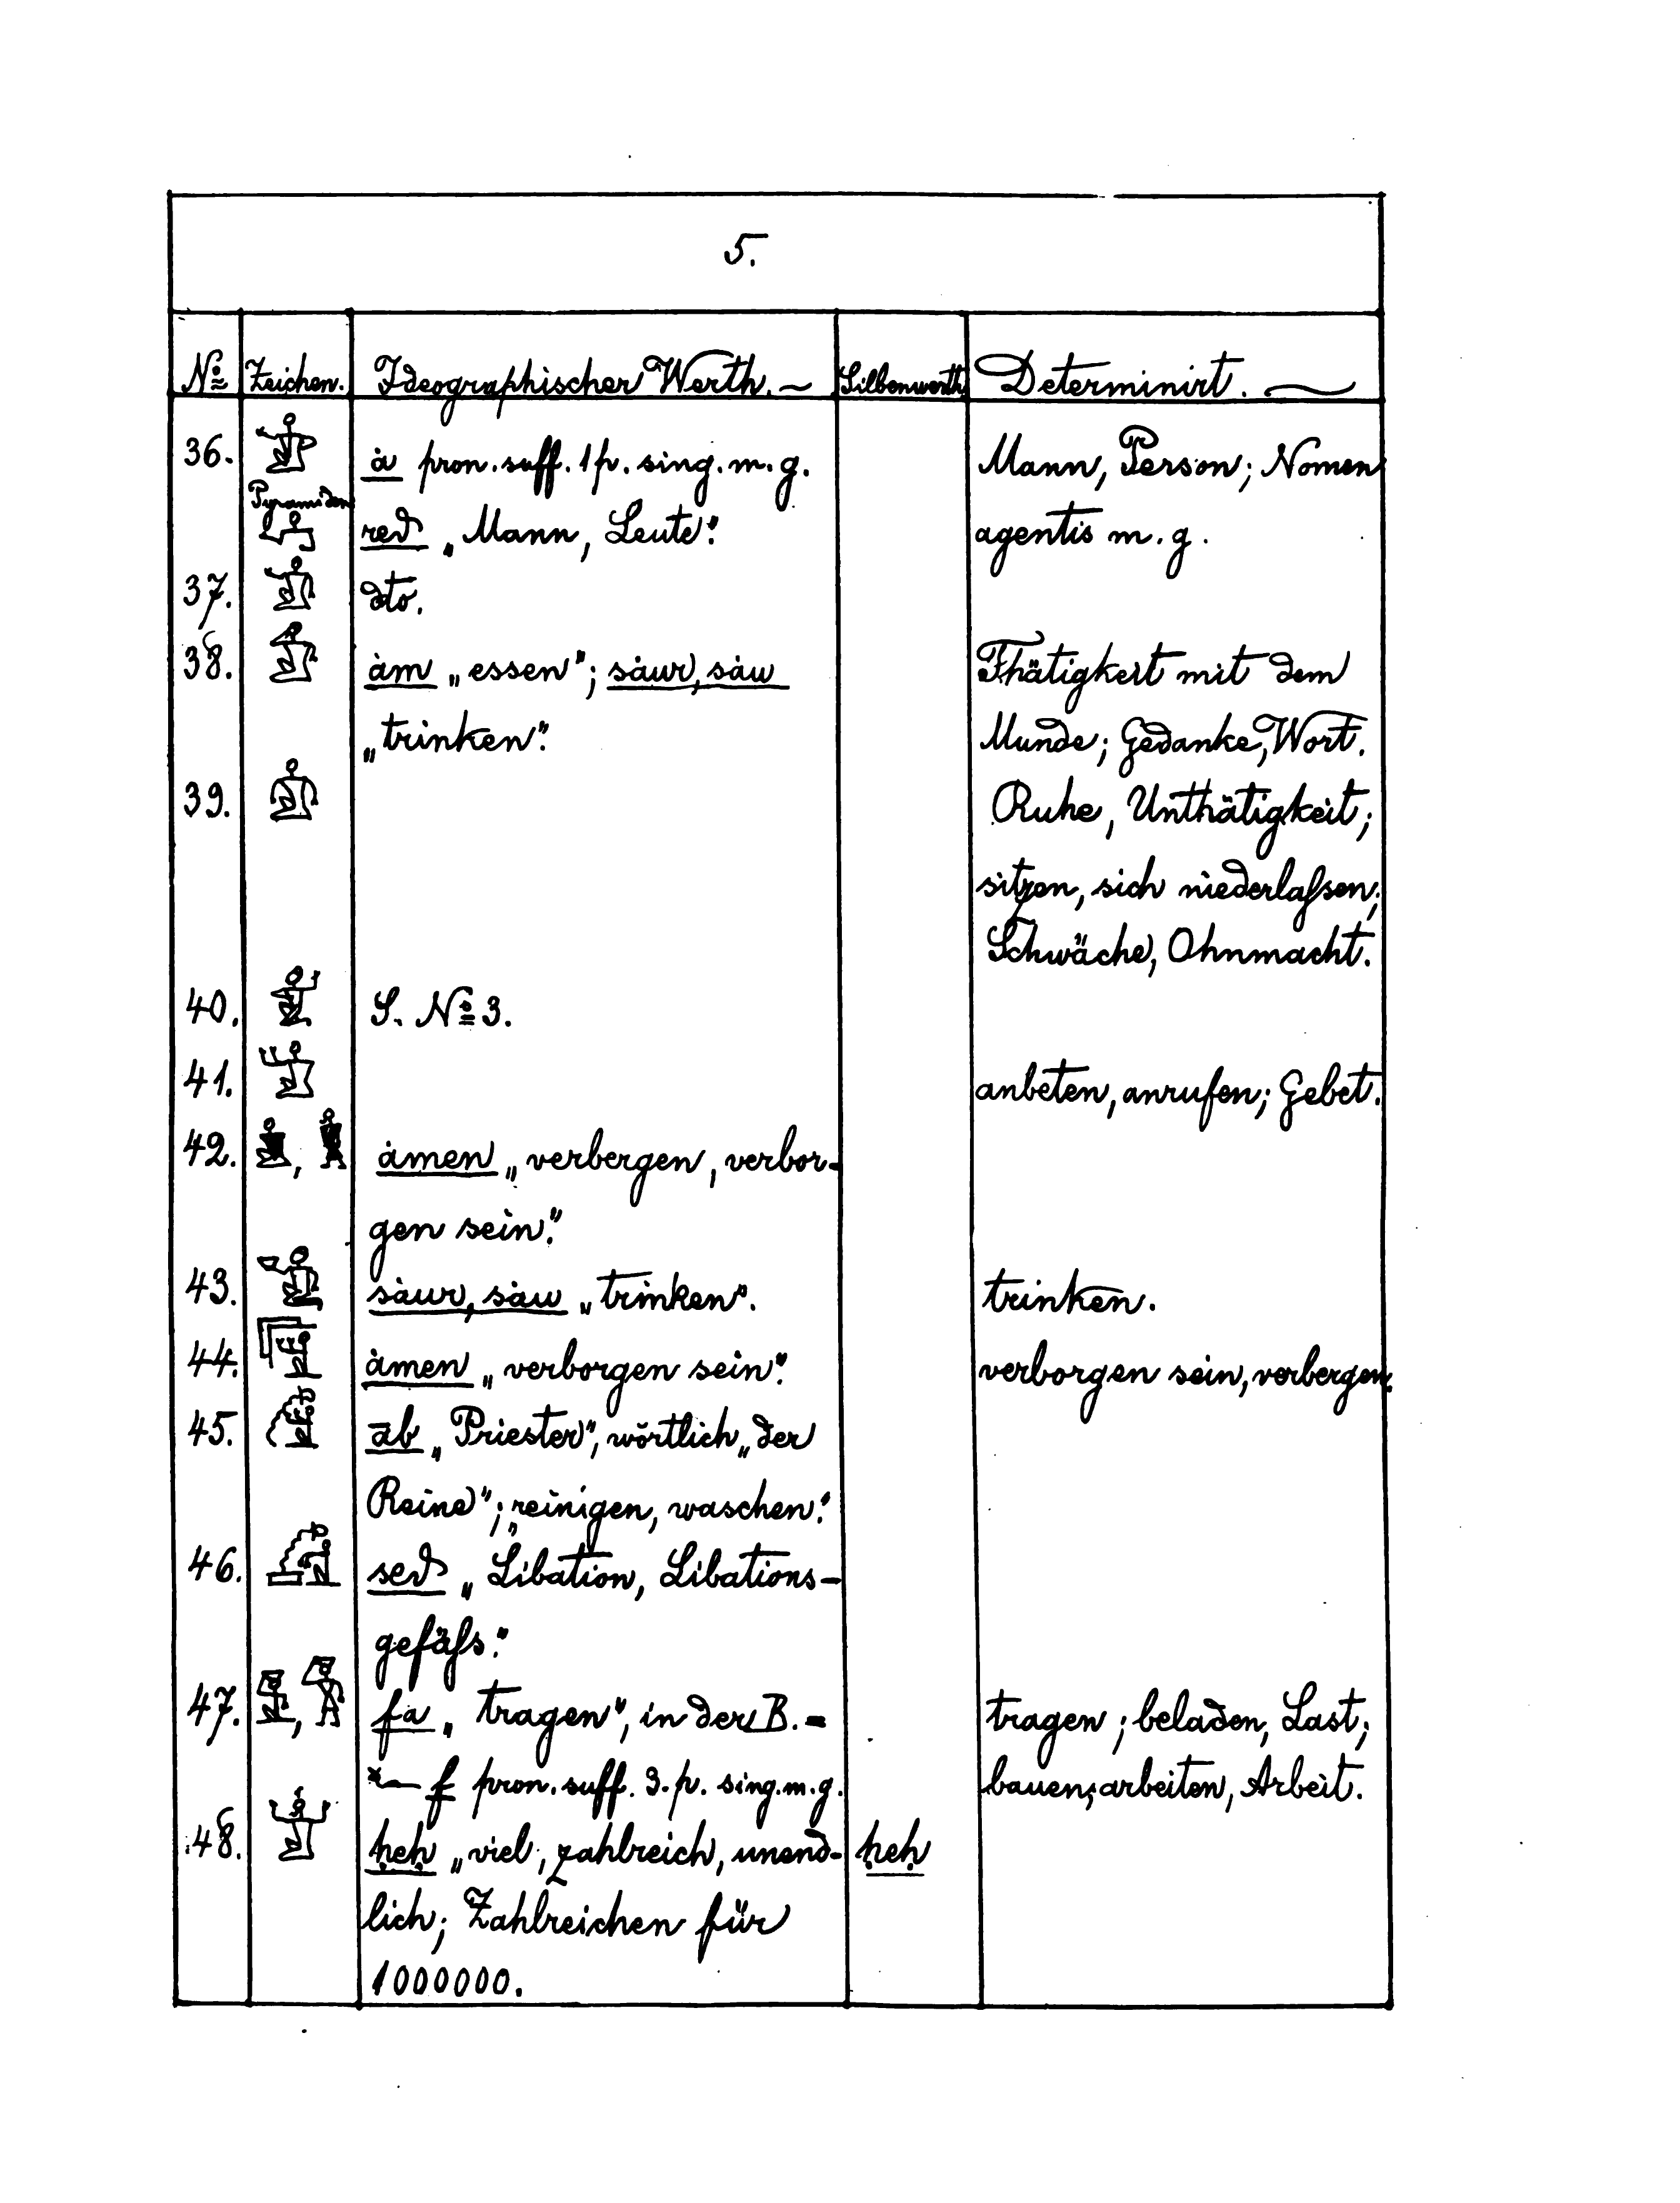 5.
№ Zeichen. Ideographischer Werth. Silbenwerth Determinirt.
36. ȧ pron. suff. 1 p. sing. m. g. Mann, Person; Nomen
Pyramiden
red „Mann, Leute". agentis m. g.
37. dto.
38. ȧm „essen"; sȧur, sȧu Thätigkeit mit dem
„trinken". Munde; Gedanke, Wort.
39. Ruhe, Unthätigkeit;
sitzen, sich niederlaſsen;
Schwäche, Ohnmacht.
40. S. № 3.
41. anbeten, anrufen; Gebet.
42. , ȧmen „verbergen, verbor-
gen sein".
43. sȧur, sȧu „trinken". trinken.
44. ȧmen „verborgen sein". verborgen sein, verbergen.
45. āb „Priester", wörtlich „der
Reine"; „reinigen, waschen".
46. sed „Libation, Libations-
gefäſs".
47. , fa „tragen", in der B. = tragen; beladen, Last;
f pron. suff. 3. p. sing. m. g. bauen, arbeiten, Arbeit.
48. ḥeḥ „viel, zahlreich, unend- ḥeḥ
lich; Zahlzeichen für
1000000.